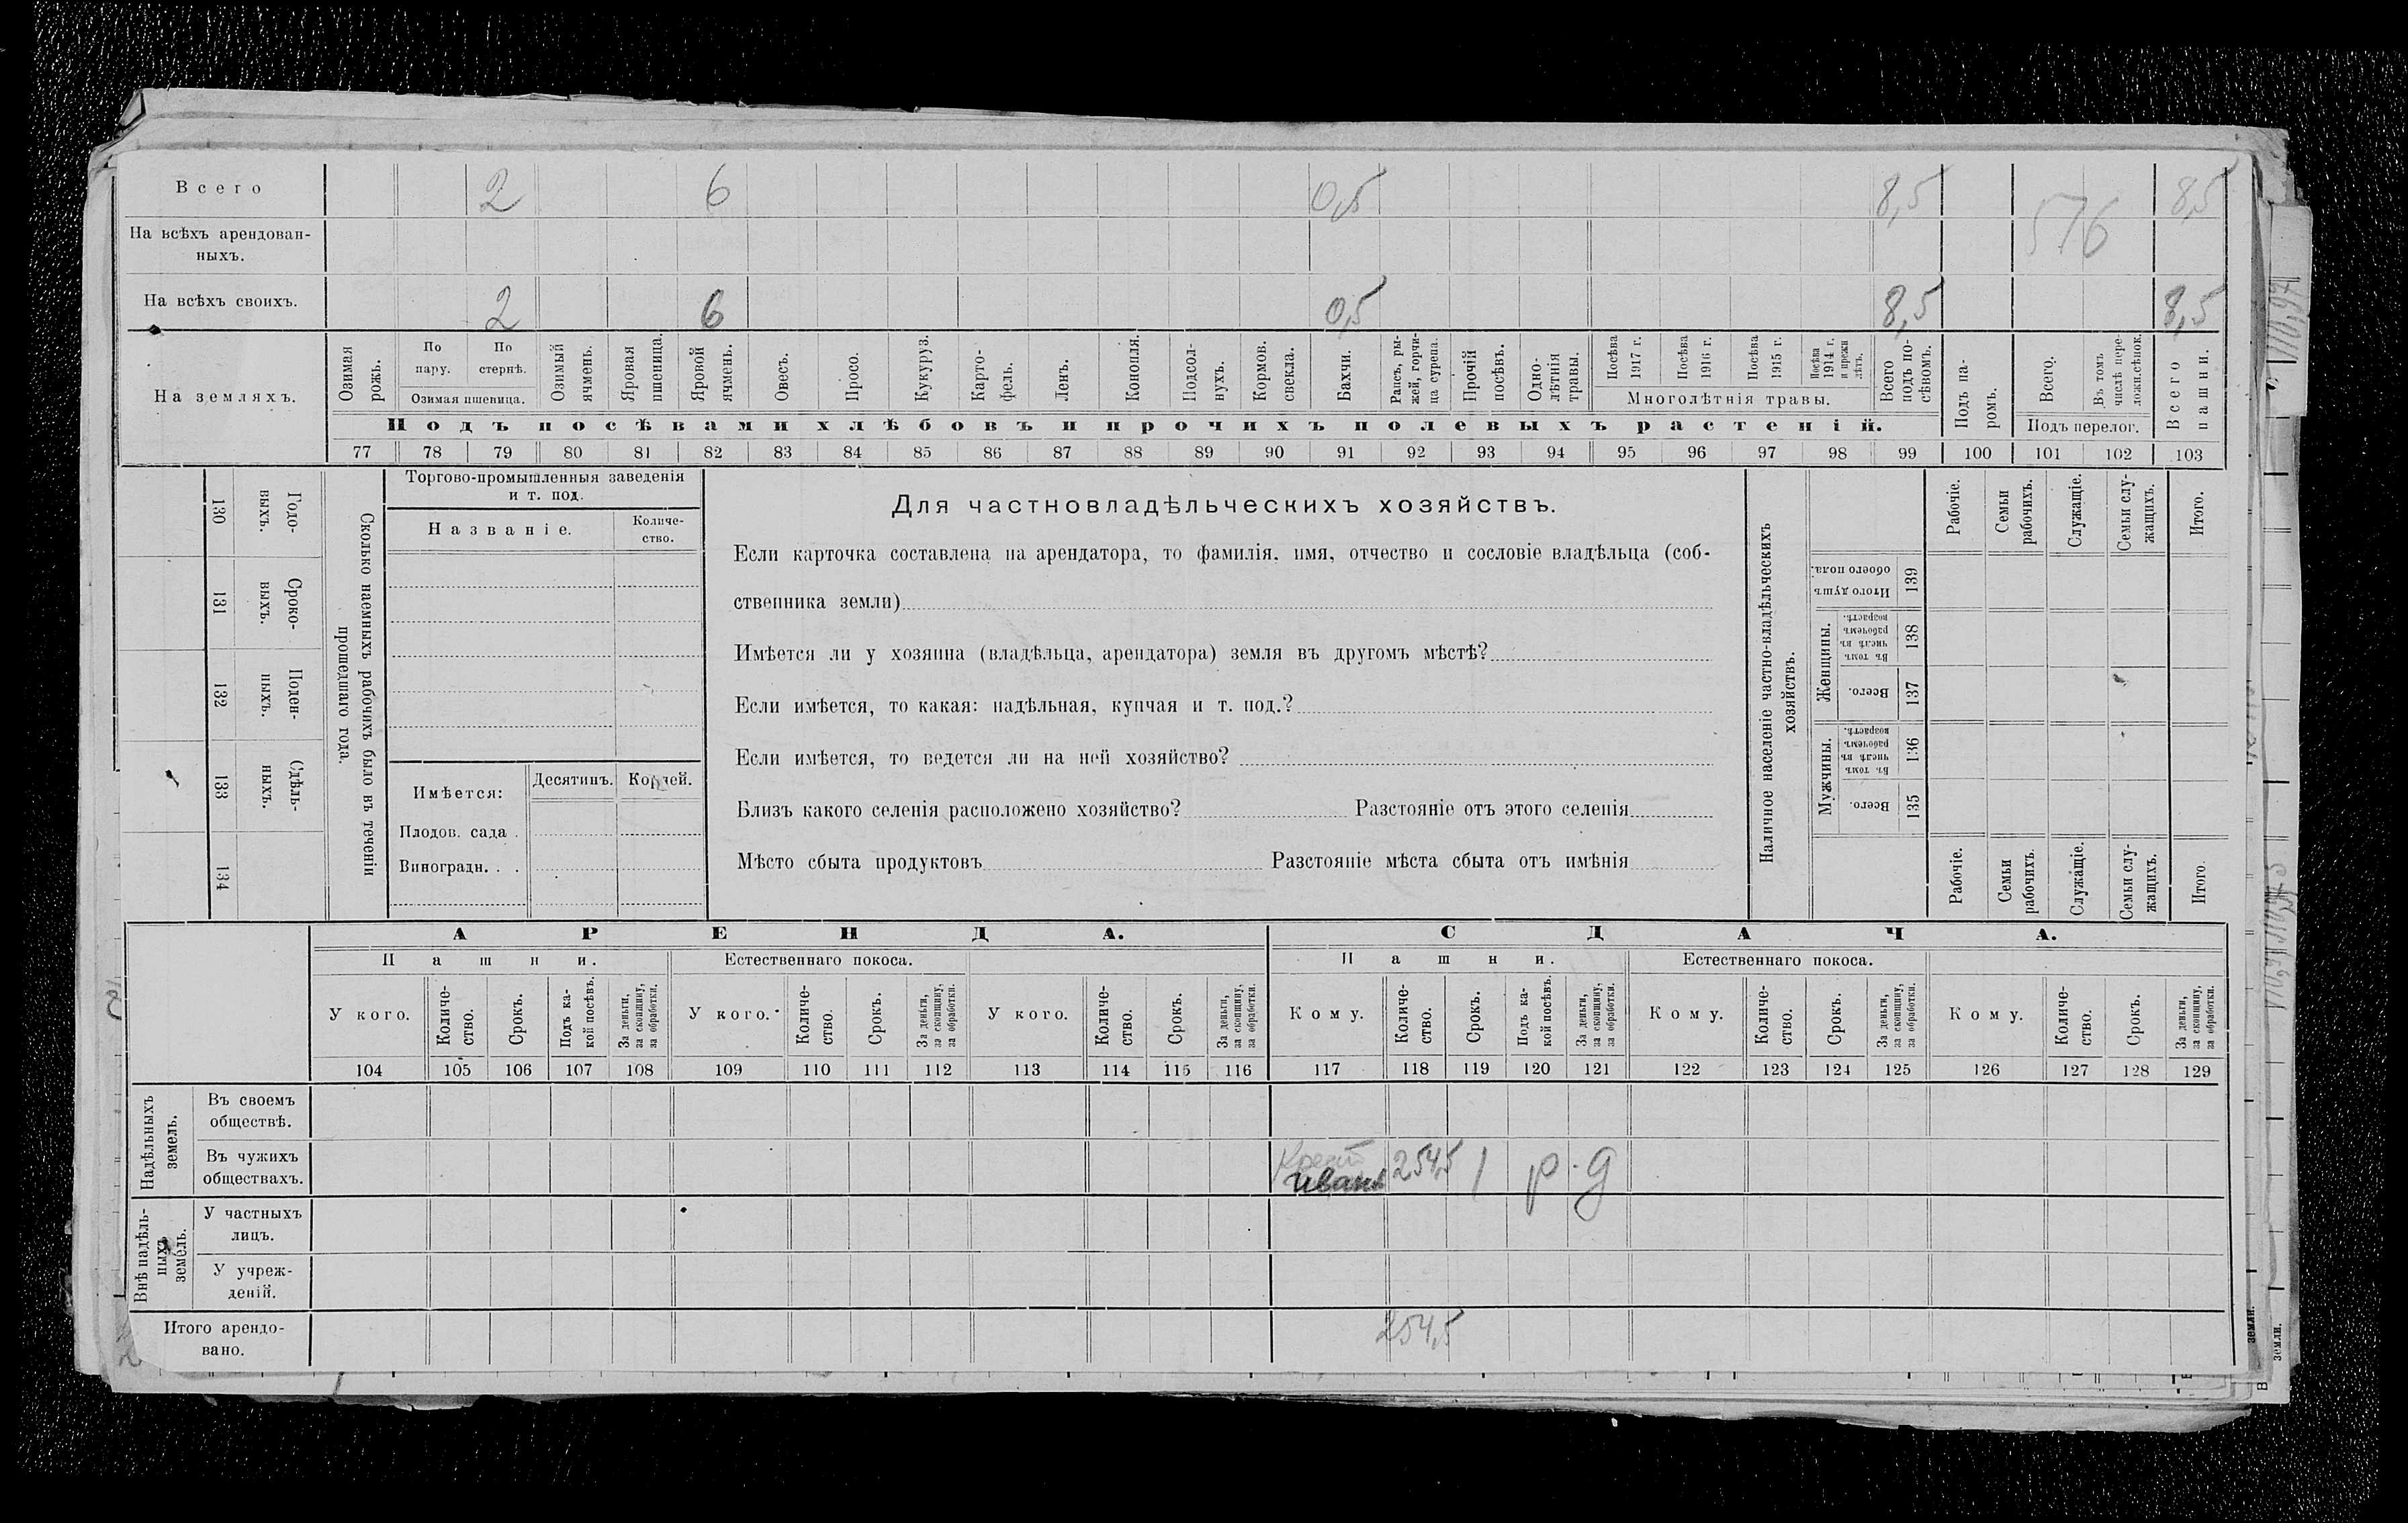 Всего 2 6 0,5 8,5 576 8,5
На всѣхъ арендован-
ныхъ.
На всѣхъ своихъ. 2 6 0,5 8,5 8,5
На земляхъ.
Озимая рожь.
По пару.
По стернѣ.
Озимая пшеница.
Озимый ячмень.
Яровая пшеница.
Яровой ячмень.
Овесъ.
Просо.
Кукуруз.
Карто-
фель.
Ленъ.
Конопля.
Подсол-
нухъ.
Кормов.
свекла.
Бахчи.
Рапсъ, ры-
жей, горчи-
ца сурепа.
Прочій
посѣвъ.
Одно-
лѣтнія
травы.
Посѣва
1917 г.
Посѣва
1916 г.
Посѣва
1915 г.
Посѣва
1914 г.
и прежн
лѣтъ.
Многолѣтнія травы.
Всего
подъ по-
сѣвомъ.
Подъ па-
ромъ.
Всего.
Въ томъ
числѣ пере-
ложн.сѣнок.
Подъ перелог.
Всего
пашни.
Подъ посѣвами хлѣбовъ и прочихъ полевыхъ растеній.
77 78 79 80 81 82 83 84 85 86 87 88 89 90 91 92 93 94 95 96 97 98 99 100 101 102 103
130 Годо-
выхъ.
131 Сроко-
выхъ.
132 Поден-
ныхъ.
133 Сдѣль-
ныхъ.
134
Сколько наемныхъ рабочихъ было въ теченіи
прошедшаго года.
Торгово-промышленныя заведенія
и т. под.
Названіе.
Количе-
ство.
Имѣется:
Десятинъ.
Корней.
Плодов. сада .
Виноградн. . .
Для частновладѣльческихъ хозяйствъ.
Если карточка составлена на арендатора, то фамилія, имя, отчество и сословіе владѣльца (соб-
ственника земли)
Имѣется ли у хозяина (владѣльца, арендатора) земля въ другомъ мѣстѣ?
Если имѣется, то какая: надѣльная, купчая и т. под.?
Если имѣется, то ведется ли на ней хозяйство?
Близъ какого селенія расположено хозяйство? Разстояніе отъ этого селенія
Мѣсто сбыта продуктовъ Разстояніе мѣста сбыта отъ имѣнія
Наличное населеніе частно-владѣльческихъ
хозяйствъ.
Рабочіе.
Семьи
рабочихъ.
Служащіе.
Семьи слу-
жащихъ.
Итого.
Итого душъ
обоего пола.
139
Женщины.
Въ томъ
числѣ въ
рабочемъ
возрастѣ.
138
Всего.
137
Мужчины.
Въ томъ
числѣ въ
рабочемъ
возрастѣ.
136
Всего.
135
Рабочіе.
Семьи
рабочихъ
Служащіе.
Семьи слу-
жащихъ.
Итого
АРЕНДА. СДАЧА.
Пашни. Естественнаго покоса. Пашни. Естественнаго покоса.
У кого.
Количе-
ство.
Срокъ.
Подъ ка-
кой посѣвъ.
За деньги,
за скопщину,
за обработки.
У кого.
Количе-
ство.
Срокъ.
За деньги,
за скопщину,
за обработки.
У кого.
Количе-
ство.
Срокъ.
За деньги,
за скопщину,
за обработки.
Кому.
Количе-
ство.
Срокъ.
Подъ ка-
кой посѣвъ.
За деньги,
за скопщину,
за обработки.
Кому.
Количе-
ство.
Срокъ.
За деньги,
за скопщину,
за обработки.
Кому.
Количе-
ство.
Срокъ.
За деньги,
за скопщину,
за обработки.
104 105 106 107 108 109 110 111 112 113 114 115 116 117 118 119 120 121 122 123 124 125 126 127 128 129
Надѣльныхъ
земель.
Въ своемъ
обществѣ.
Въ чужихъ
обществахъ.
254,5 1 р. д
Внѣ надѣль-
ныхъ
земель.
У частныхъ
лицъ.
У учреж-
деній.
Итого арендо-
вано.
254,5
земли.
земли.